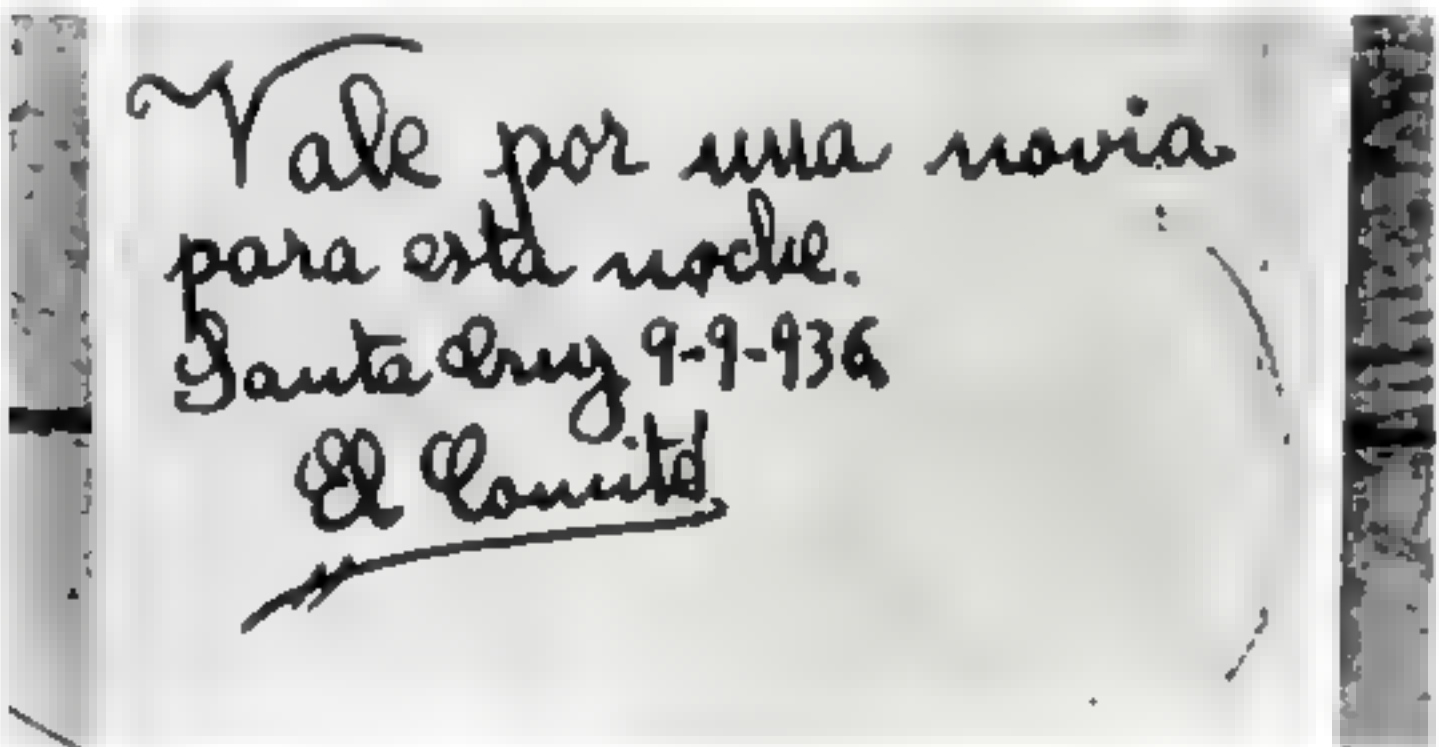 Vale por una novia
para esta noche.
Santa Cruz 9-9-936
El Comité